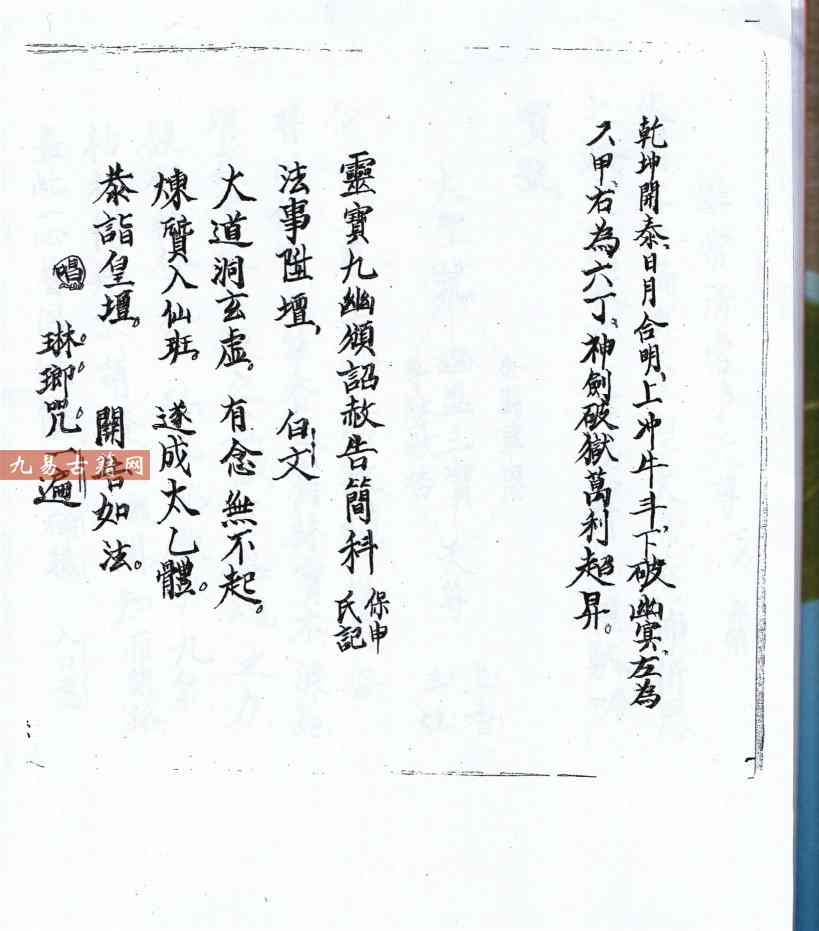 乾坤開泰、日月合明、上冲牛斗、下破幽冥、左為
六甲、右為六丁、神劍破獄萬利超昇。
靈寶九幽頒詔赦告簡科 保申氏記
法事陞壇、 白文
大道洞玄虛。有念無不起。
煉質入仙班。遂成太乙體。
恭詣皇壇。開告如法。
唱 琳。瑯。咒。一遍
九易古籍网